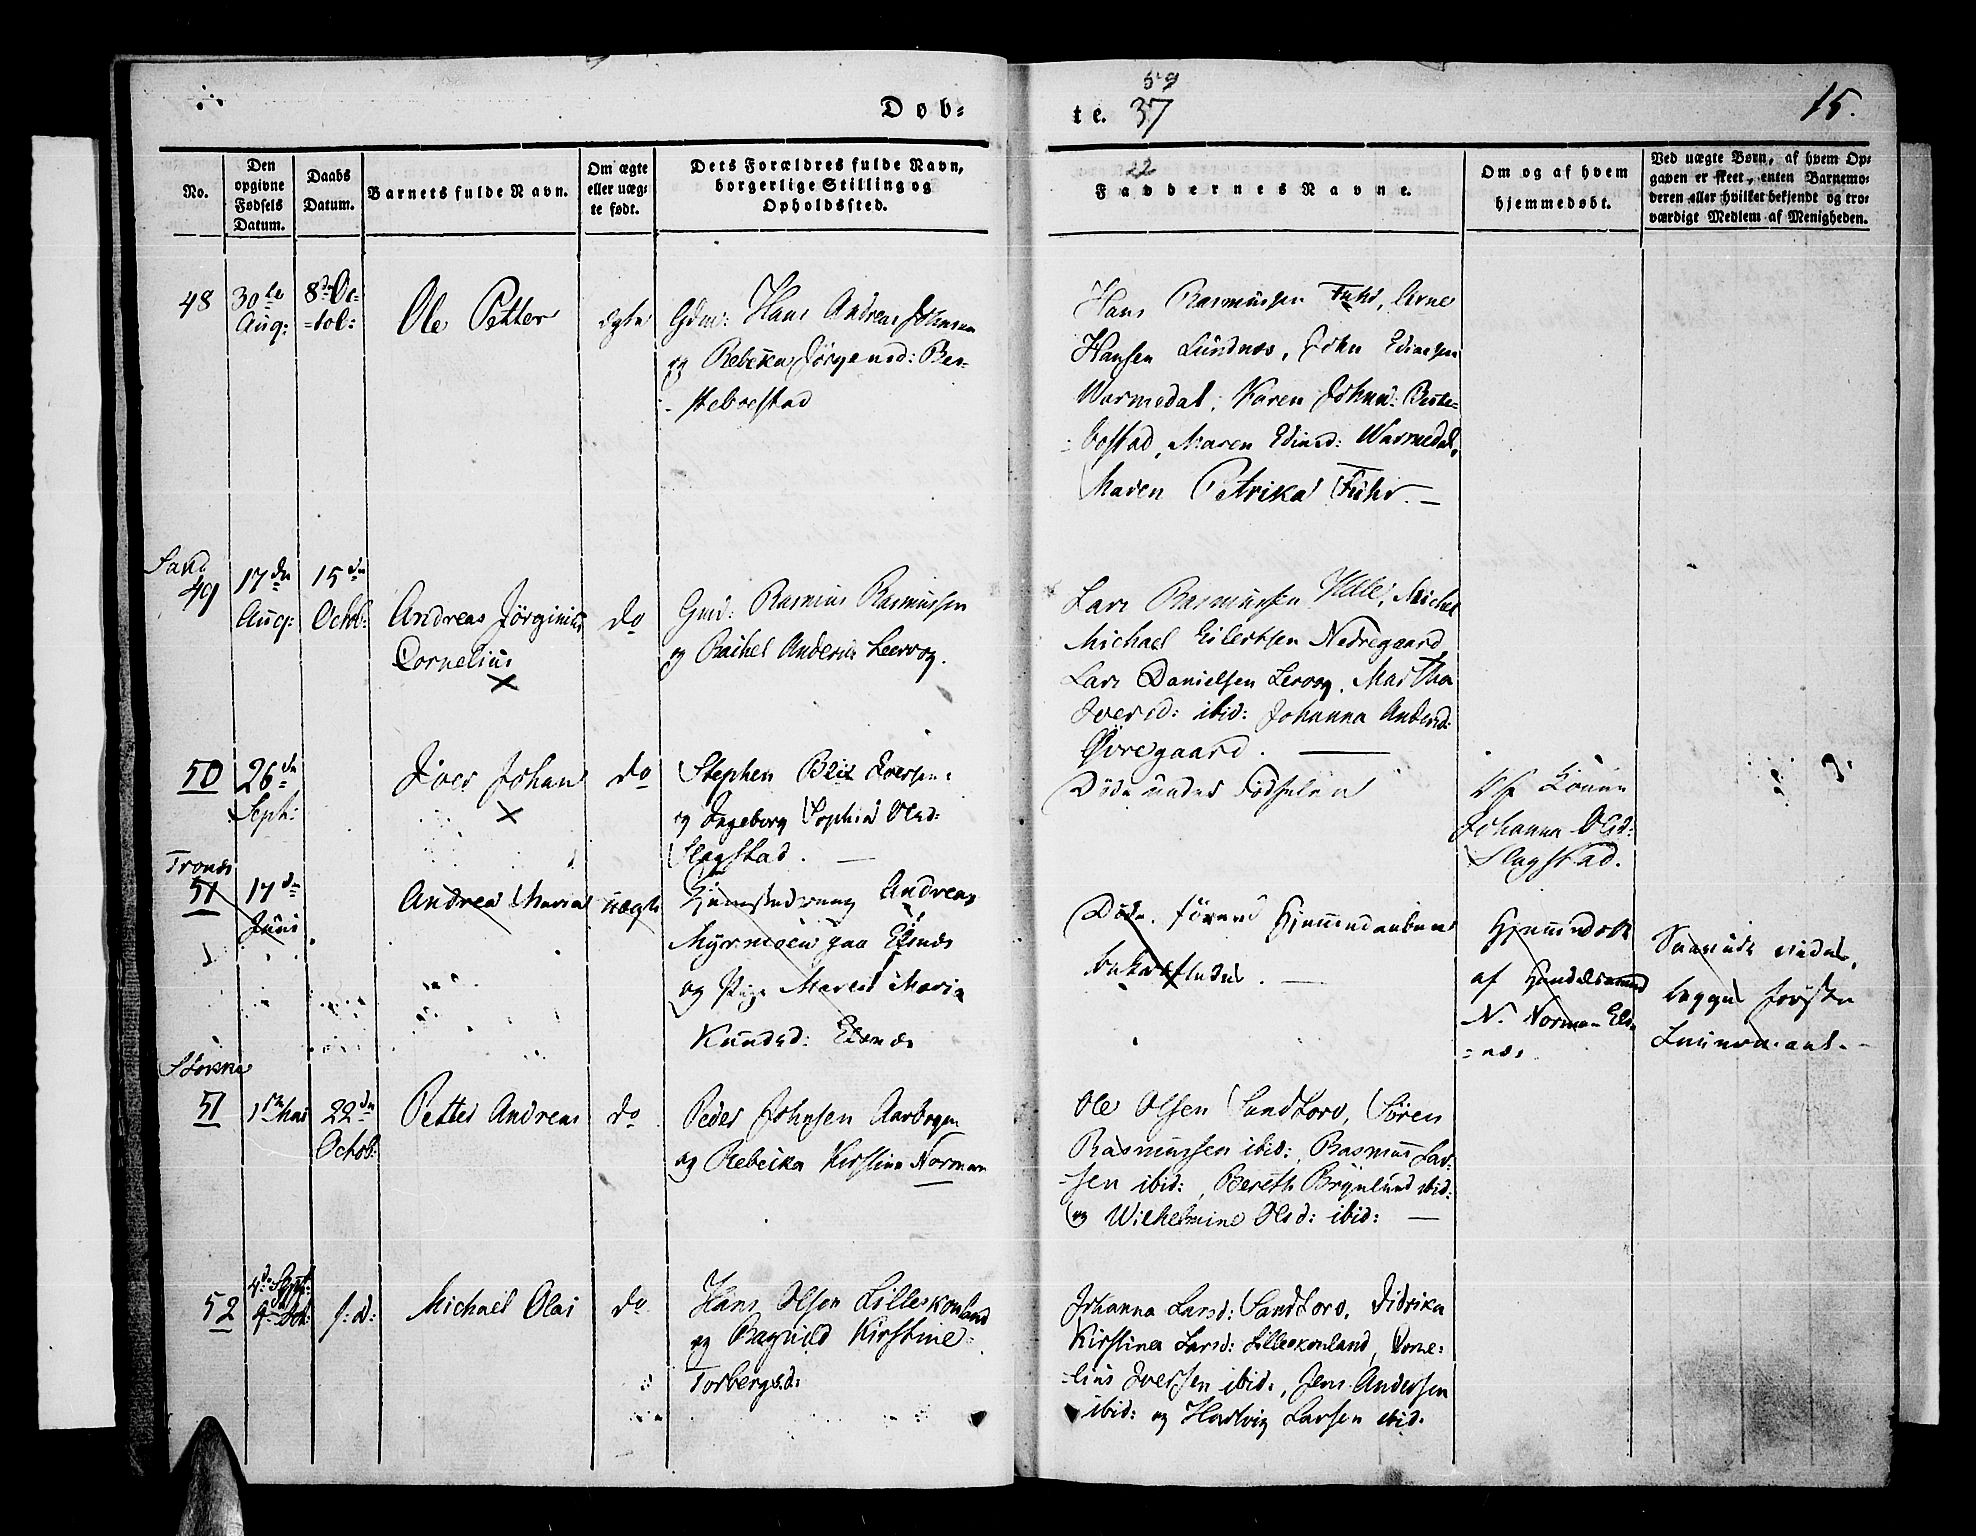 Dob=
te. 37
59
15.
22
No.
Den
opgivne
Fødsels
Datum.
Daabs
Datum.
Barnets fulde Navn.
Om ægte
eller uæg=
te født.
Dets Forældres fulde Navn,
borgerlige Stilling og
Opholdssted.
Faddernes Navne.
Om og af hvem
hjemmedøbt.
Ved uægte Børn, af hvem Op=
gaven er skeet, enten Barnemo=
deren eller hvilket bekjendt og tro=
værdigt Medlem af Menigheden.
48
30te
Aug:
8de Oc=
=tob:
Ole Petter
ægte
Gdm: Hans Andreas Johnsen
og Rebecka Jørgensd: Bes=
=steboestad
Hans Rasmussen Fuhr, Arne
Hansen Lundnes, John Edinsen
Warmedal, Karen Johnsd: Beste=
=bostad, Maren Edinsd: Warmedal,
Maren Petrika Fuhr. —
Sand
49
17de
Aug:
15de
Octob:
Andreas Jørginius
Cornelius
×
do
Gmd: Rasmus Rasmussen
og Rachel Andersd: Leervog.
Lars Rasmussen
Michael Eilertsen Nedregaard
Lars Danielsen Lervog, Martha
Iversd: ibid: Johanna Andersd:
Øvregaard. —
50
26de
Sept:
Iver Johan
×
do
Stephen Blix Iversen
og Ingeborg Sophia Olsd:
Slagstad. —
Døde under Fødselen
Af Konen
Johanna Olsd:
Slagstad.
Tronæs
51
17de
Juni
Andrea Maria
uægte
Andreas
Myrmoen paa Elgnæs
og Pige Maren Maria
Knudsd: Elgnæs
Døde, førend Hjemmedaaben
bekræftedes. —
Hjemmedøbt
af Handelsmand
N. Norman Elg=
=næs
begges første
Leiermaal. -
51
22de
Octob:
Petter Andreas
do
Peder Johnsen Aarbogen
og Rebecka Kirstine Norman
Ole Olsen Sandtorv, Søren
Rasmussen ibid:, Rasmus Lar=
=sen ibid:, Bereth Brynlund ibid:
og Wilhelmine Olsd: ibid: —
52
4de Sept:
s: d:
Michael Olai
do
Hans Olsen Lilleskonland
og Ragnild Kirstine
Torbergsd:
Johanna Larsd: Sandtorv, Didrika
Kirstina Larsd: Lilleskonland, Corne=
=lius Iversen ibid:, Jens Andersen
ibid: og Hartvig Larsen ibid: